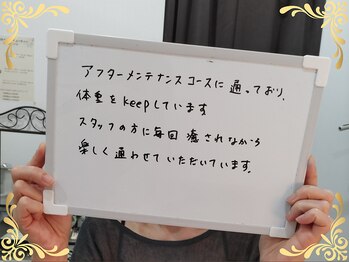 アフターメンテナンスコースに通っており、
体重をkeepしています
スタッフの方に毎回癒されながら
楽しく通わせていただいています。